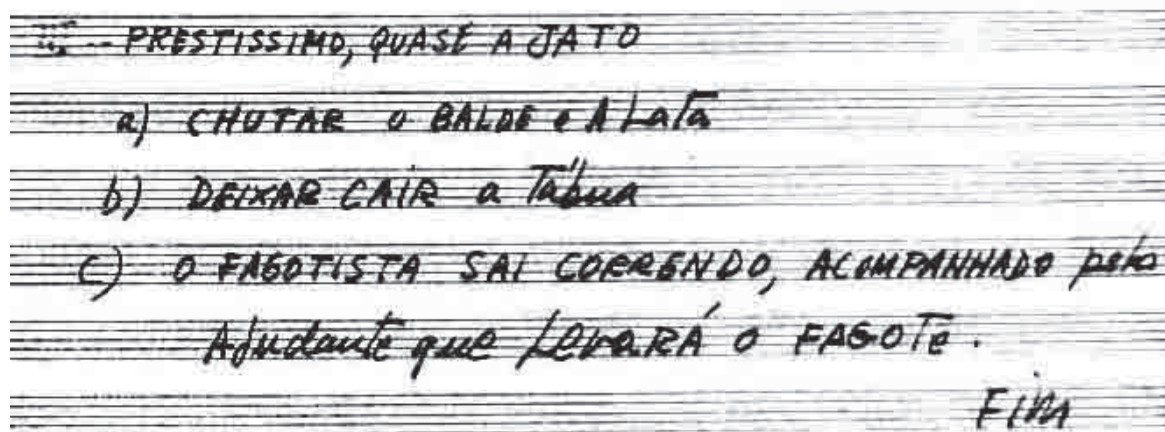 -- PRESTISSIMO, QUASE A JATO
a) CHUTAR O BALDE e A LaTa
b) DEIXAR CAIR a Tábua
c) O FAGOTISTA SAI CORRENDO, ACOMPANHADO pelo
Ajudante que LevaRÁ o FAGOTe.
FIM